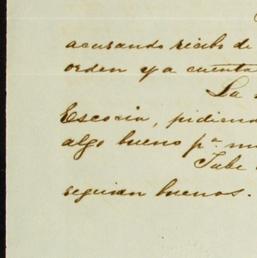 acusando recibo de
orden y a cuenta
La
Escocia, pidiend
algo bueno pª m
Tube
seguian buenos.